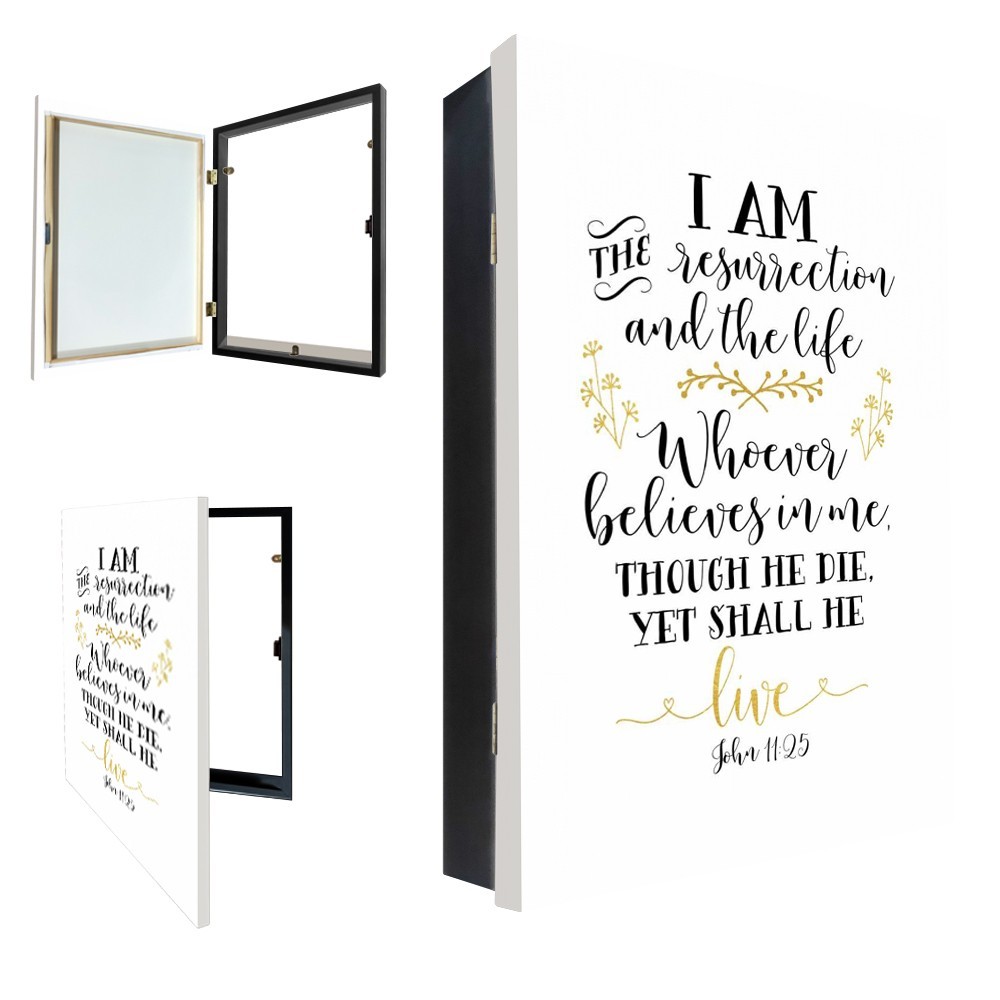 I AM
THE resurrection
and the life
Whoever
believes in me,
THOUGH HE DIE,
YET SHALL HE
live
John 11:25
I AM
THE resurrection
and the life
Whoever
believes in me,
THOUGH HE DIE,
YET SHALL HE
live
John 11:25